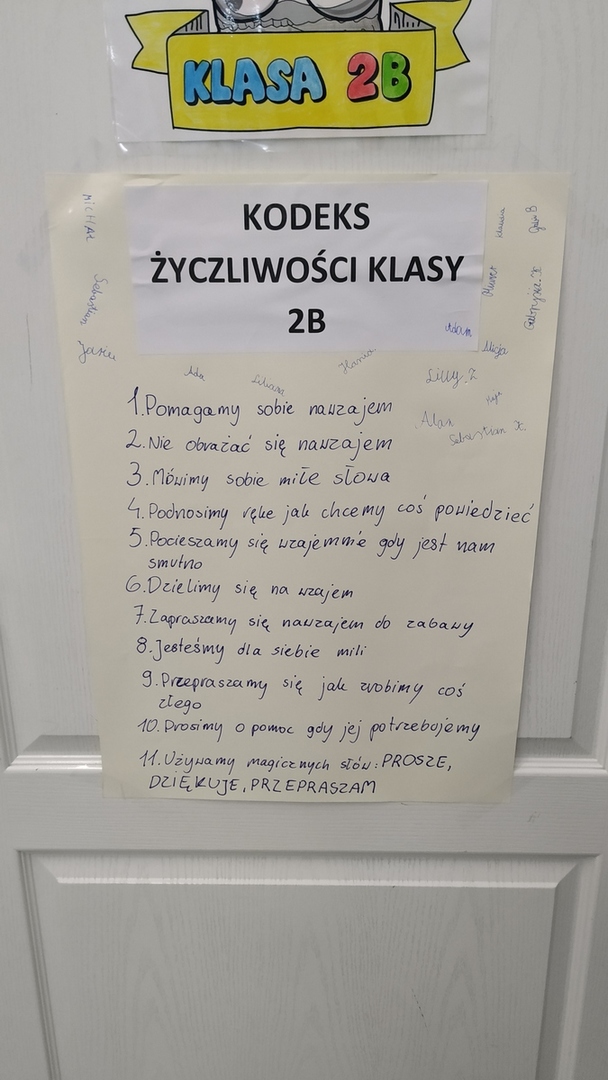 KLASA 2B
KODEKS
ŻYCZLIWOŚCI KLASY
2B
MiCHAŁ
Sebastian
Adam
Alicja
Ada
Liliana
Hania
Lilly. Z
Alan
Sebastian K.
1. Pomagamy sobie nawzajem
2. Nie obrażać się nawzajem
3. Mówimy sobie miłe słowa
4. Podnosimy ręke jak chcemy coś powiedzieć
5. Pocieszamy się wzajemnie gdy jest nam
smutno
6. Dzielimy się na wzajem
7. Zapraszamy się nawzajem do zabawy
8. Jesteśmy dla siebie mili
9. Przepraszamy się jak zrobimy coś
złego
10. Prosimy o pomoc gdy jej potrzebujemy
11. Używamy magicznych słów: PROSZE,
DZIĘKUJE, PRZEPRASZAM